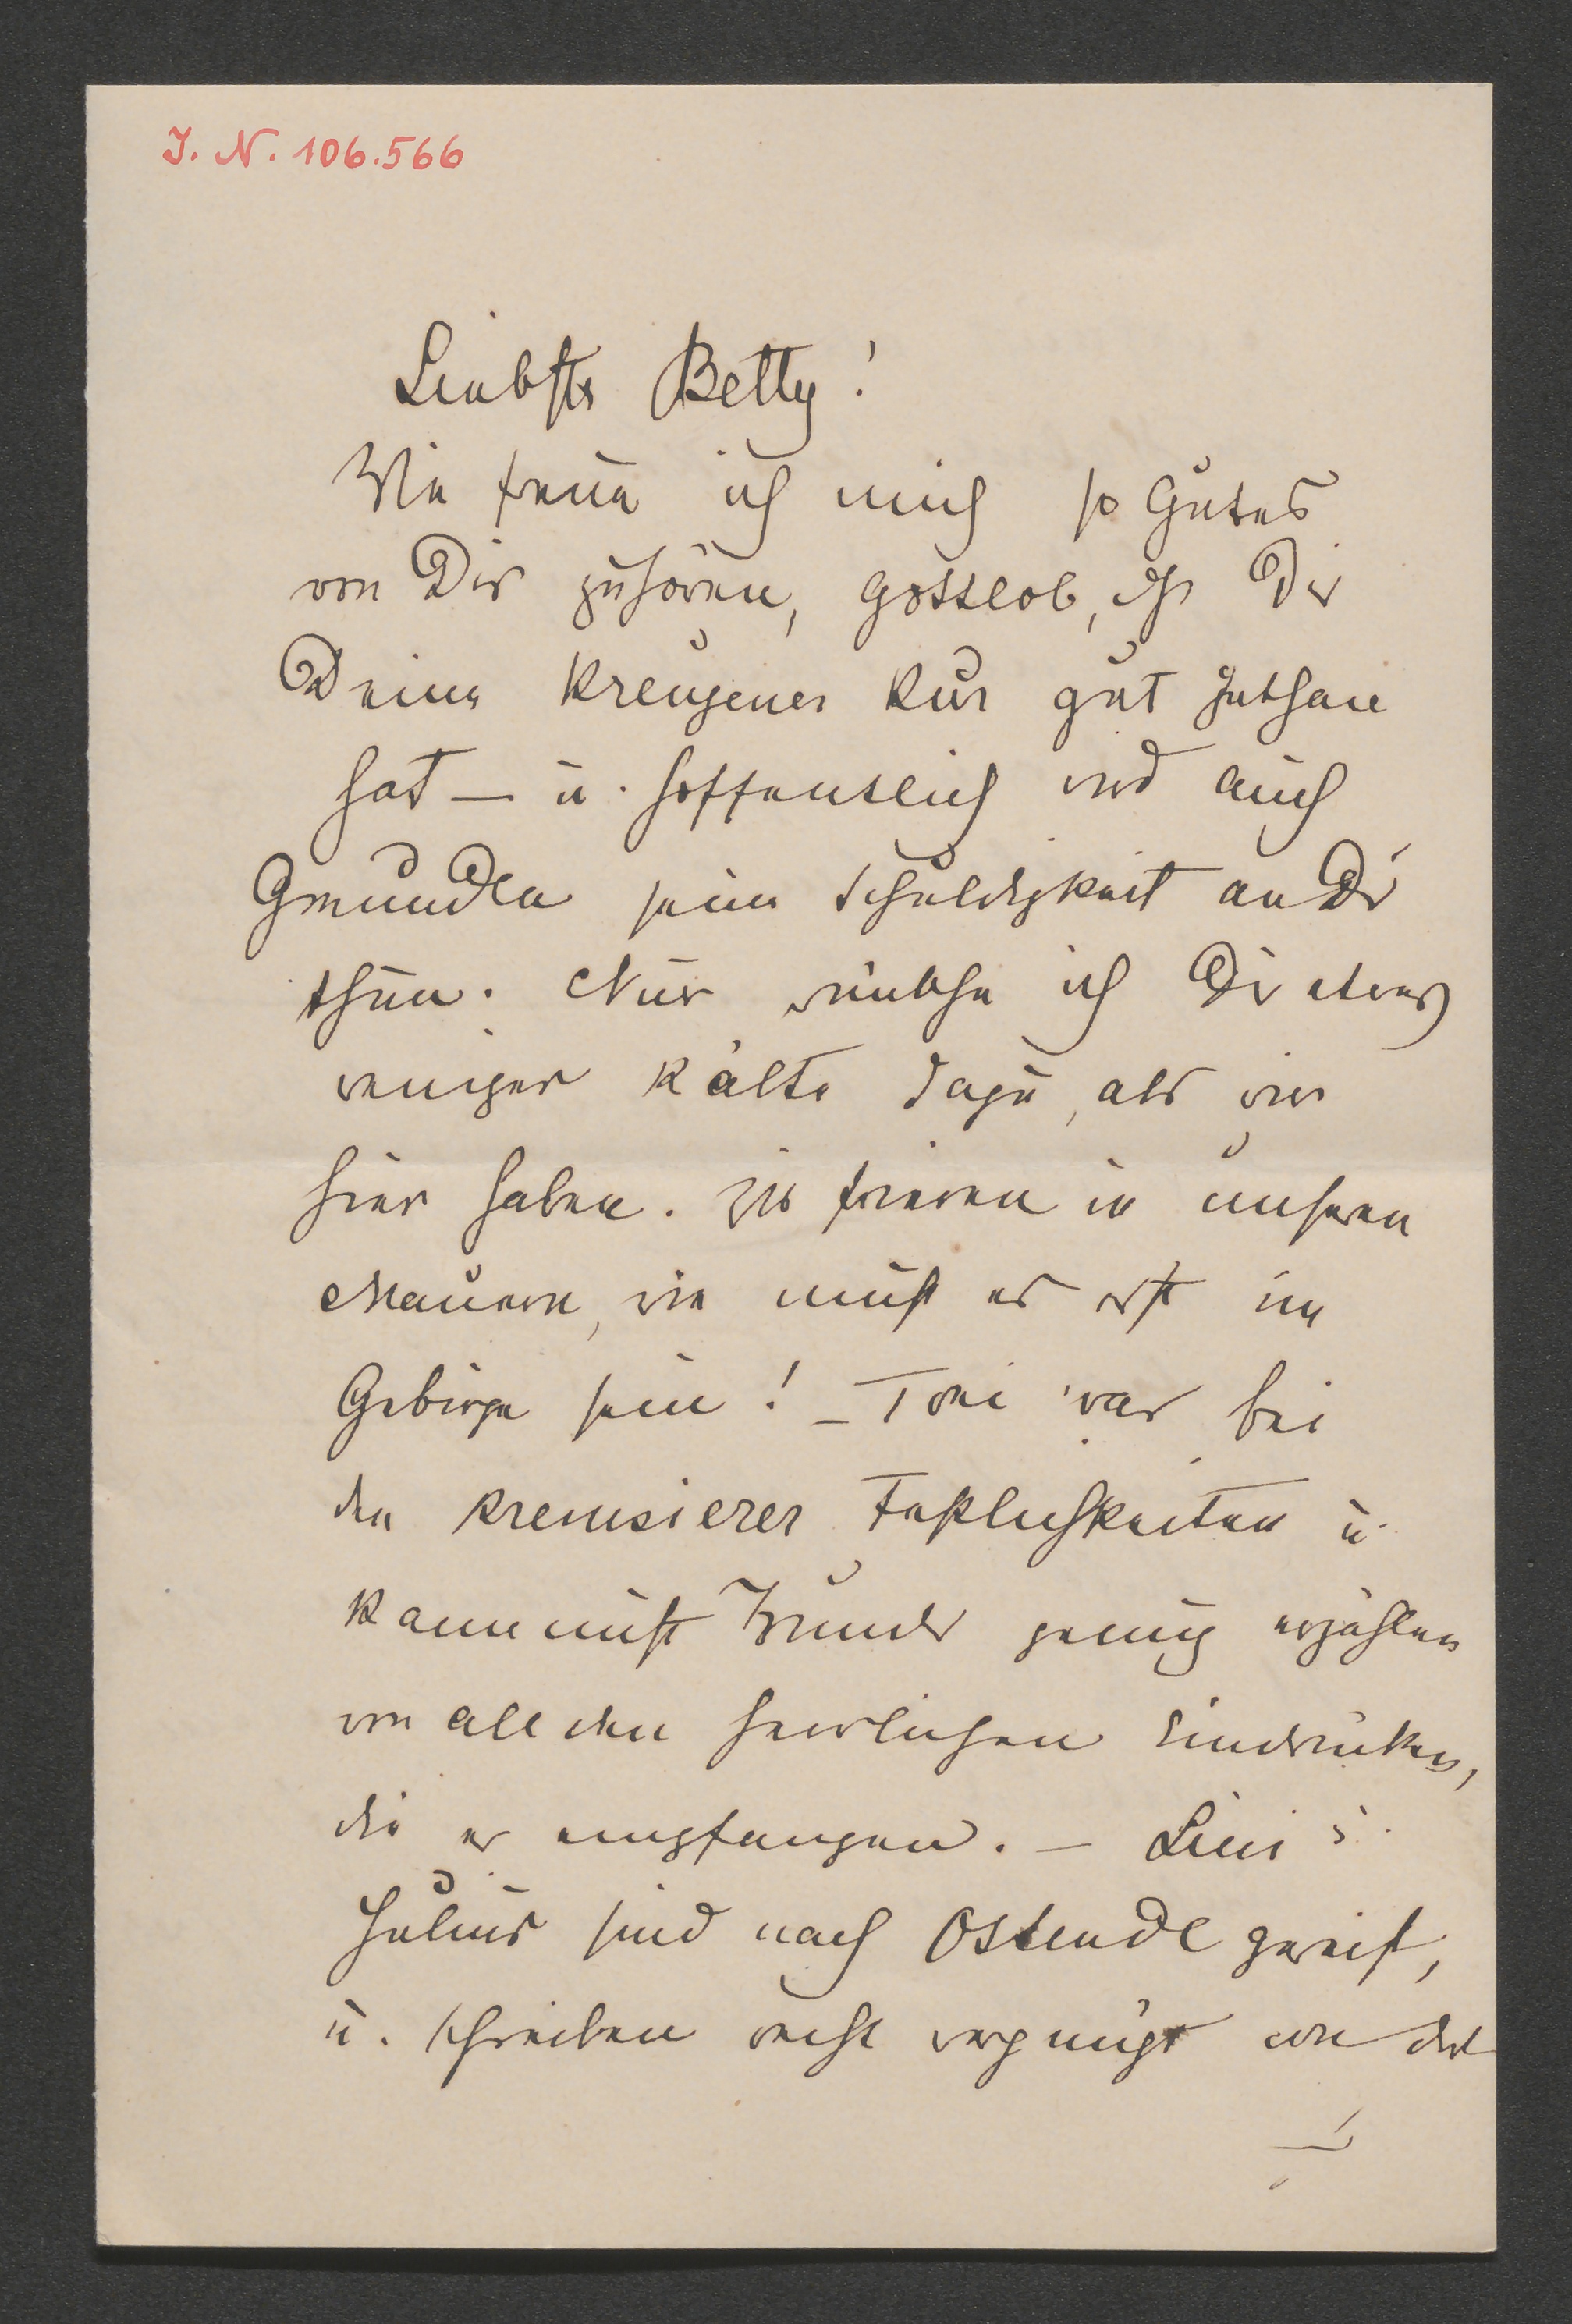 I. N. 106.566
Liebste Betty!
Wie freue ich mich so Gutes
von Dir zuhören, Gottlob, daß Dir
Deine Kreuzener Kur gut gethan
hat – u. hoffentlich wird auch
Gmunden seine Schuldigkeit an Dir
thun. Nur wünsche ich Dir etwas
weniger Kälte dazu, als wir
hier haben. Wir frieren in unseren
Mauern, wie muß es erst im
Gebirge sein! – Toni war bei
den Kremsierer Festlichkeiten u.
kann nicht Wunder genug erzählen
von all den herrlichen Eindrücken,
die er empfangen. – Lini u.
Julius sind nach Ostende gereist,
u. schreiben recht vergnügt von dort